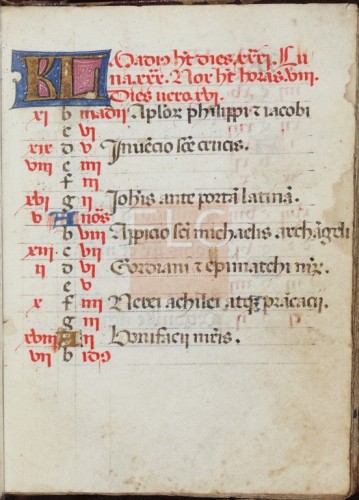 KL Madiꝰ hꝫ dies.xxxi. Lu
na.xxx. Nox hꝫ horas.viii.
Dies uero.xvi.
xi b madii Aploꝝ philippi ⁊ iacobi
c vi
xix d v Inuẽcio scẽ crucis.
viii e iiii
f iii
xvi g ii Johĩs ante portã latinã.
v A nõs
b viii Appicio sci michaelis archãgeli
xiii c vii
ii d vi Gordiani ⁊ epimachi mr̃.
e v
x f iiii Nerei achilei atqꝫ prãcacii.
g iii
xviii A ii Bonifacii mr̃is.
vii b idꝰ